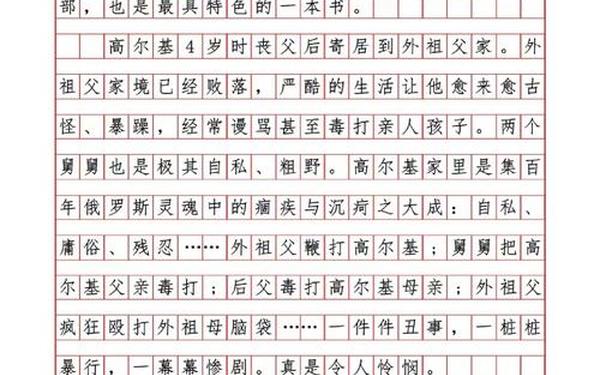 部，也是最具特色的一本书。
高尔基4岁时丧父后寄居到外祖父家。外
祖父家境已经败落，严酷的生活让他愈来愈古
怪、暴躁，经常谩骂甚至毒打亲人孩子。两个
舅舅也是极其自私、粗野。高尔基家里是集百
年俄罗斯灵魂中的痼疾与沉疴之大成：自私、
庸俗、残忍……外祖父鞭打高尔基；舅舅把高
尔基父亲毒打；后父毒打高尔基母亲；外祖父
疯狂殴打外祖母脑袋……一件件丑事，一桩桩
暴行，一幕幕惨剧。真是令人怜悯。